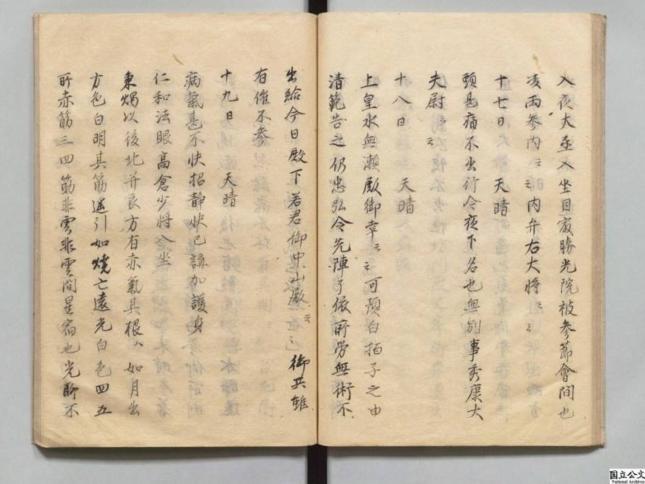 入夜大臣入坐自最勝光院被参節會間也
凌雨参内云々内弁右大将云々
十七日　天晴
頭甚痛不出行今夜下名也無別事秀康大
夫尉云々
十八日　天晴
上皇水無瀬殿御幸云々可預白拍子之由
清範告之仍忠弘令先陣了依所労無術不
出給今日殿下若君御中山殿云々御共雖
有催不参
十九日　天晴
病氣甚不快招静快已講加護身
仁和法眼高倉少将入坐
秉燭以後北并艮方有赤氣其根ハ如月出
方色白明其筋遥引如焼亡遠光白色四五
所赤筋三四筋非雲非雲間星宿也光聊不
国立公文
National Archives